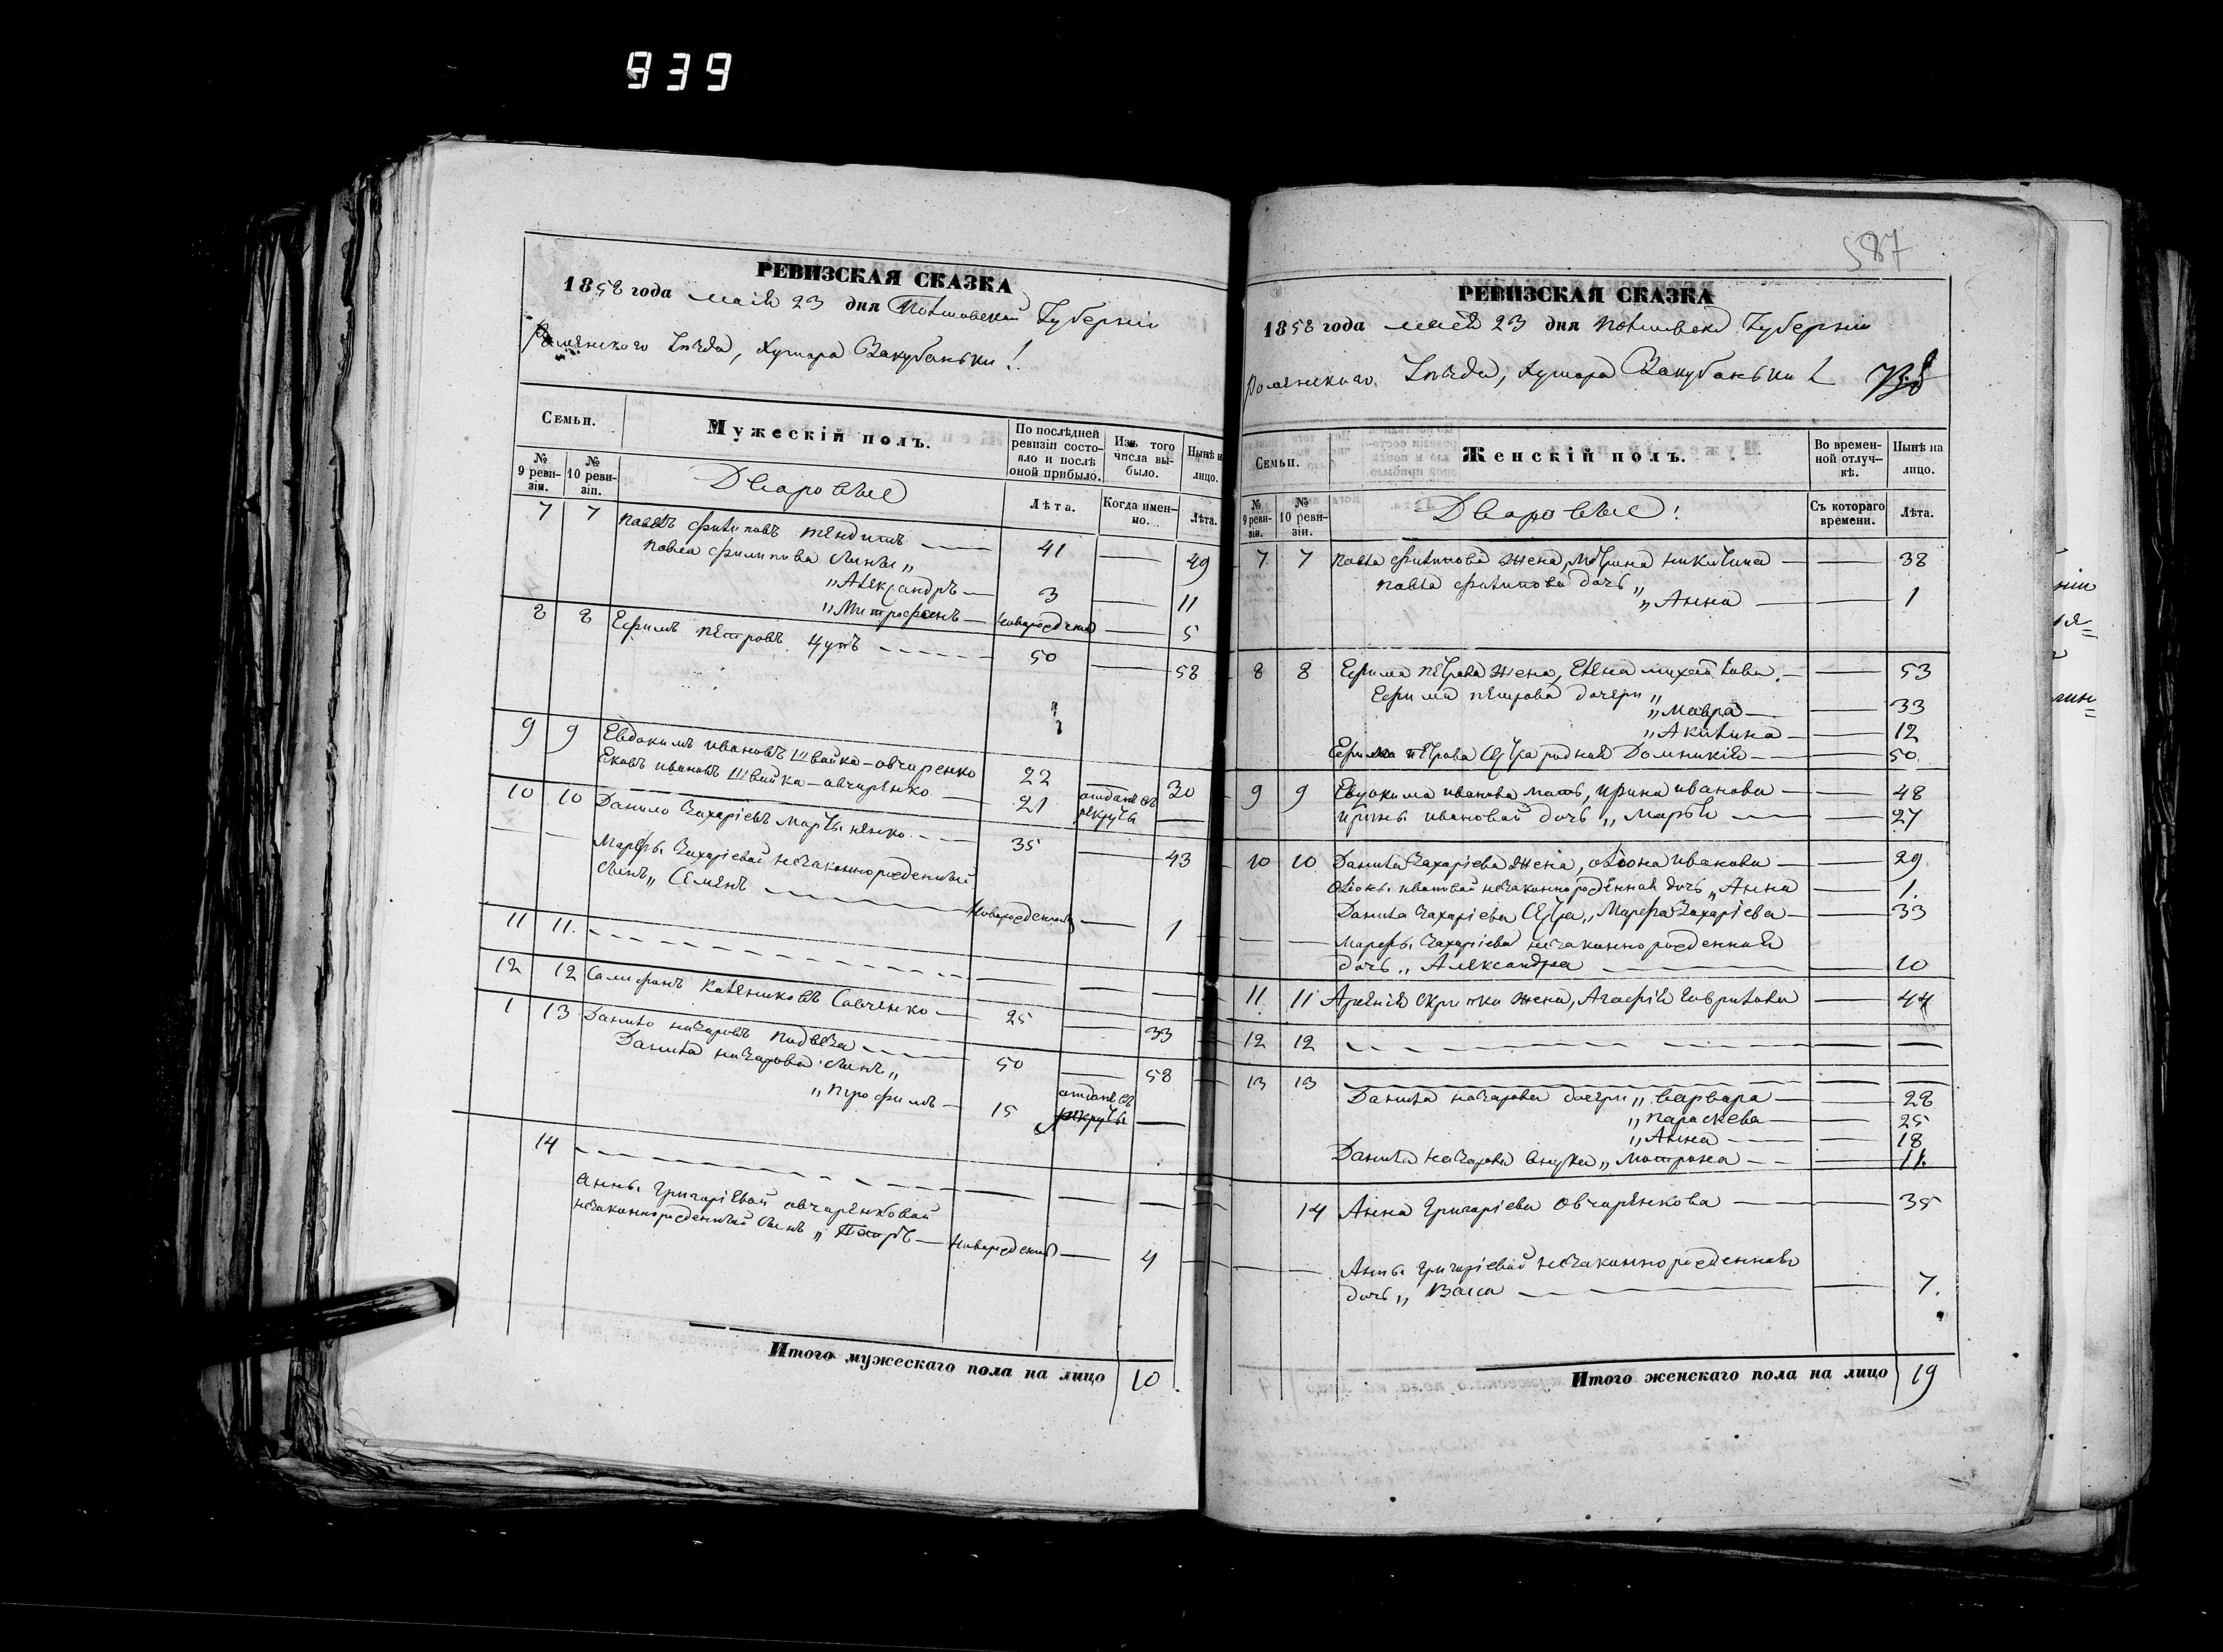 939
РЕВИЗСКАЯ СКАЗКА
1858 года маія 23 дня Полтавской Губерніи
Роменского Уѣзда, Хутора Закубаньки!
Семьи.
Мужескій полъ.
По послѣдней ревизіи состояло и послѣ оной прибыло.
Изъ того числа выбыло.
Нынѣ н лицо.
№ 9 ревизіи.
№ 10 ревизіи.
Дваровые
Лѣта.
Когда именно.
Лѣта.
7 7 Павелъ Филиповъ — 41 — 49
Павла Филипова сыны „
„ Александръ — 3 — 11
„ Митрофанъ — Новорожденый — 5
8 8 Ефимъ Петровъ — 50 — 58
9 9 Евдокимъ Ивановъ Швайка-овчаренко 22 — 30
Яковъ Ивановъ Швайка-овчаренко — 21 отданъ въ рекруты —
10 10 Данило Захаріевъ Мартыненко — 35 — 43
Марфы Захаріевой незаконнорожденный
сынъ „ Семенъ — Новорожденный — 1
11 11. — — — —
12 12 Савченко — 25 — 33
1 13 Данило Назаровъ — 50 — 58
Данила Назарова сынъ „
„ Трофимъ — 15 отданъ въ рекруты —
14 — — — —
Анны Григоріевой овчаренковой
незаконнорожденный сынъ „ Петръ — Новорожденый — 4
Итого мужескаго пола на лицо 10
587
РЕВИЗСКАЯ СКАЗКА
1858 года маія 23 дня Полтавской Губерніи
Роменского Уѣзда, Хутора Закубаньки
Семьи.
Женскій полъ.
Во временной отлучкѣ.
Нынѣ на лицо.
№ 9 ревизіи.
№ 10 ревизіи.
Дваровые!
Съ котораго времени.
Лѣта.
7 7 Павла Филипова жена, Мотрина Никитина — — 38
Павла Филипова дочь „
„ Анна — — 1
8 8 Ефима Петрова жена, Елена Михайлова — — 53
Ефима Петрова дочери „
„ Мавра — — 33
„ Акилина — — 12
Ефима Петрова сестра родная Домникія — — 50
9 9 Евдокима Иванова мать, Ирина Иванова — — 48
Ирины Ивановой дочь „ Марья — — 27
10 10 Данила Захаріева жена, Ивановa — — 29
Ивановой незаконнорожденная дочь „ Анна — 1.
Данила Захаріева сестра „ Марфа Захаріева — — 33
Марфы Захаріевой незаконнорожденная
дочь „ Александра — — 10
11 11 Арсенія жена, Агафія Гаврилова — 44
12 12 — — —
13 13 — — —
Данила Назарова дочери „ Варвара — — 28
„ Параскева — — 25
„ Анна — — 18
Данила Назарова внука „ Мотрона — — 11.
14 Анна Григоріева Овчаренкова — — 35
Анны Григоріевой незаконнорожденная
дочь „ Васса — — 7.
Итого женскаго пола на лицо 19